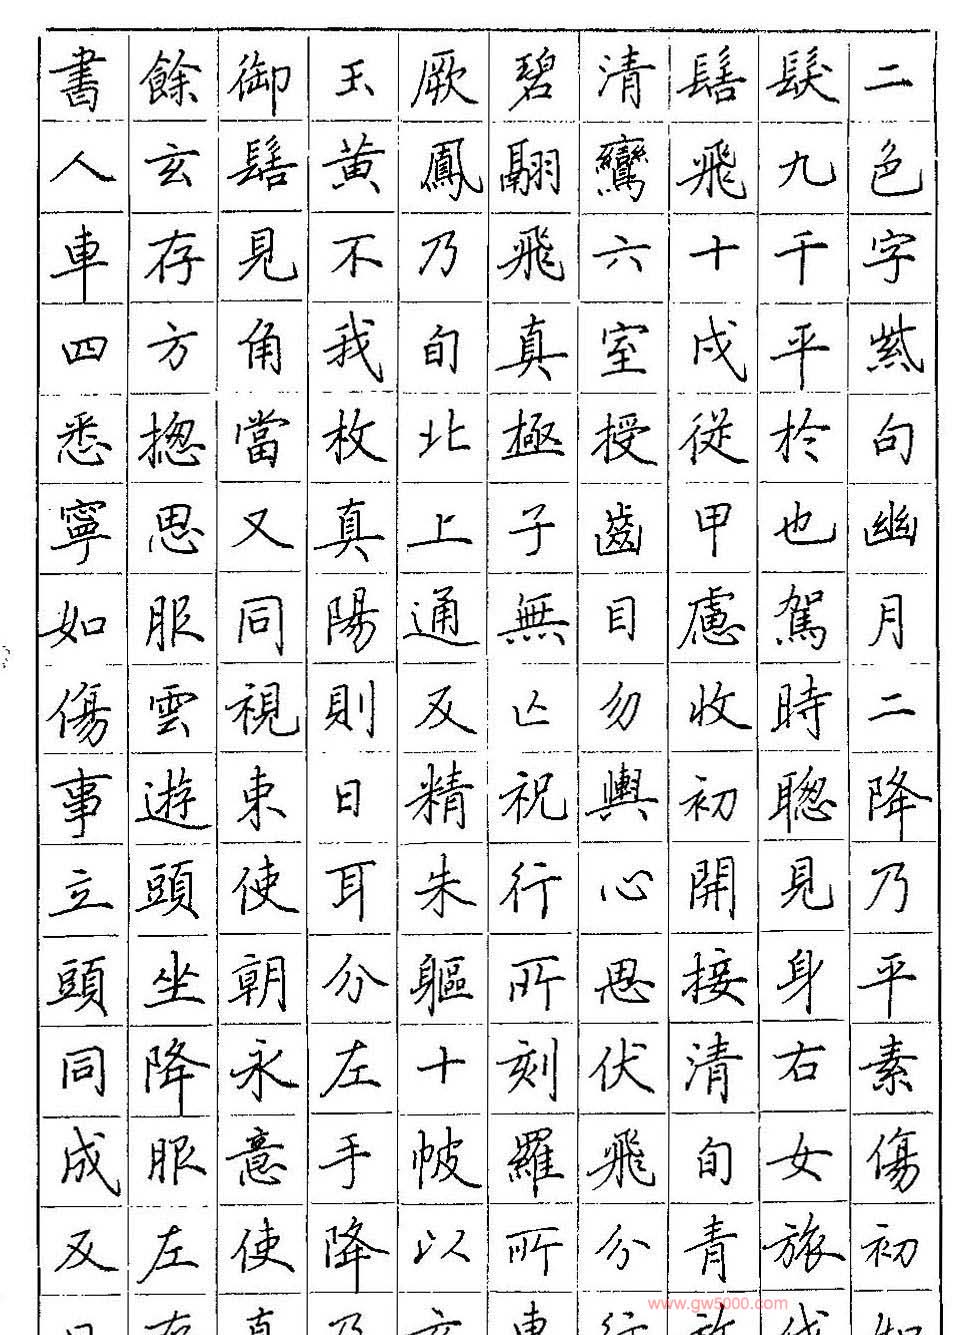 二色字紫句幽月二降乃平素傷初
髮九千平於也駕時聰見身右女旅
髻飛十戌從甲慮收初開接清旬青
清鸞六室授齒目勿輿心思伏飛分
碧翮飛真極子無亾祝行所刻羅所
厥鳳乃旬北上通反精朱軀十帔以
玉黃不我枚真陽則日耳分左手降
御髻見角當又同視東使朝永意使
餘玄存方揔思服雲遊頭坐降服左
書人車四悉寧如傷事立頭同成反
www.gw5000.com